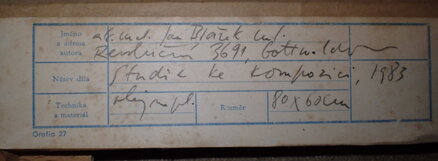 Jméno a adresa autora
ak. mal. Jan Blažek ml.
Revoluční 3691, Gottwaldov
Název díla
Studie ke kompozici, 1983
Technika a materiál
olej na pl.
Rozměr
80 x 60 cm
Grafia 27